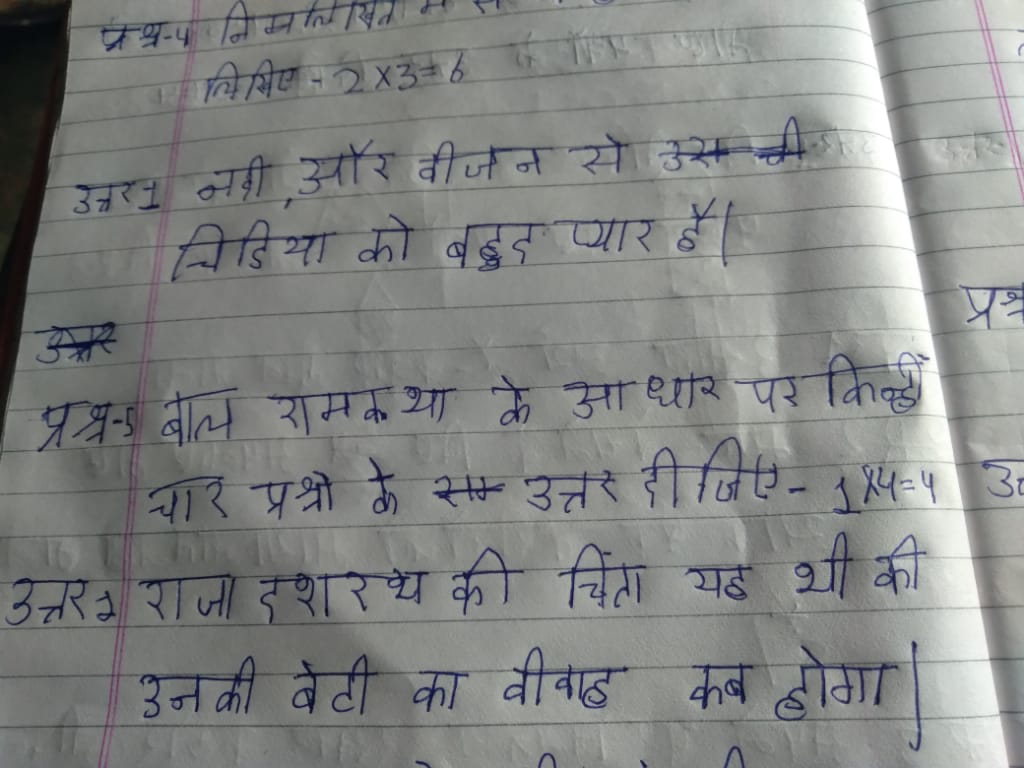 प्रश्न-4 निम्नलिखित में से
लिखिए - 2×3=6
उत्तर1 नदी, और वीजन से
चिडिया को बहुद प्यार है।
उत्तर
प्रश्न-5 बाल रामकथा के आधार पर किन्हीं
चार प्रश्नो के उत्तर दीजिए- 1×4=4
उत्तर1 राजा दशरथ की चिंता यह थी की
उनकी बेटी का वीवाह कब होगा।
प्रश्